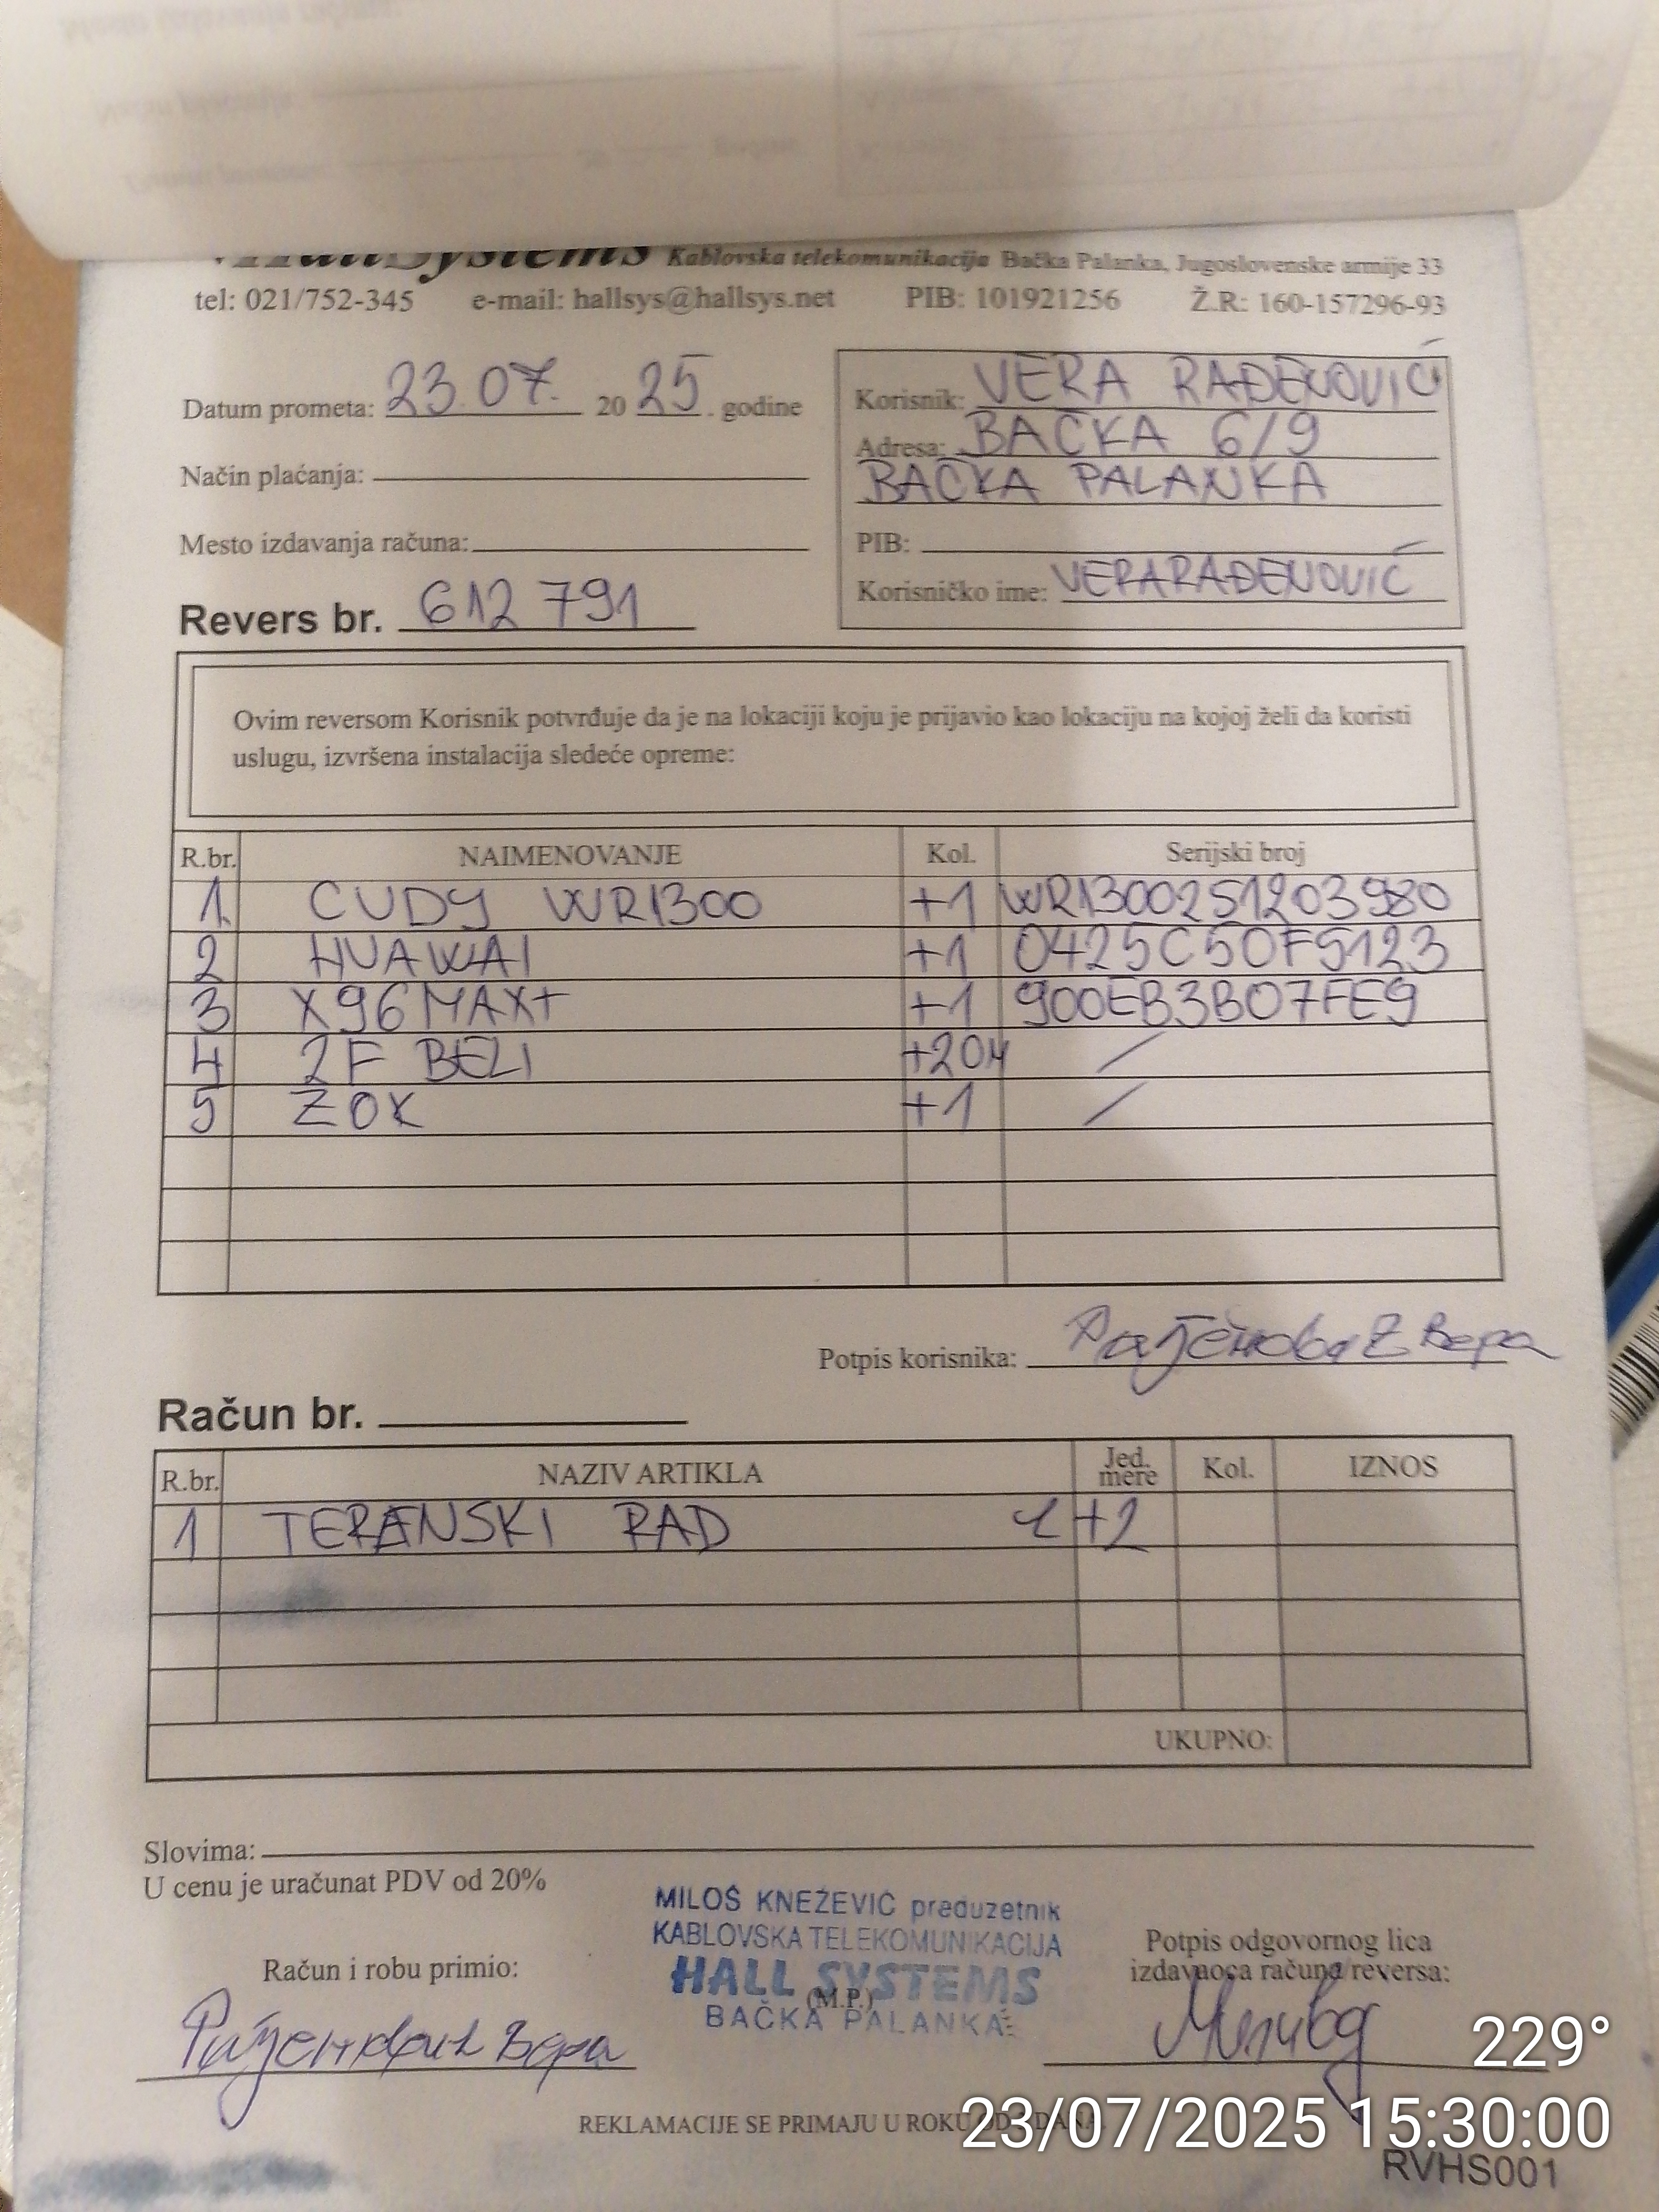 HallSystems Kablovska telekomunikacija Bačka Palanka, Jugoslovenske armije 33
tel: 021/752-345 e-mail: hallsys@hallsys.net PIB: 101921256 Ž.R: 160-157296-93
Datum prometa: 23.07. 2025. godine
Način plaćanja:
Mesto izdavanja računa:
Revers br. 612791
Korisnik: VERA RAĐENOVIĆ
Adresa: BAČKA 6/9
BAČKA PALANKA
PIB:
Korisničko ime: VERARAĐENOVIĆ
Ovim reversom Korisnik potvrđuje da je na lokaciji koju je prijavio kao lokaciju na kojoj želi da koristi
uslugu, izvršena instalacija sledeće opreme:
R.br. NAIMENOVANJE Kol. Serijski broj
1. CUDY WR1300 +1 WR1300251203980
2 HUAWAI +1 0425C50F5123
3 X96MAX+ +1 900EB3B07FE9
4 2F BELI +20M /
5 ZOK +1 /
Potpis korisnika: Рађеновић Вера
Račun br.
R.br. NAZIV ARTIKLA Jed. mere Kol. IZNOS
1 TERENSKI RAD +2
UKUPNO:
Slovima:
U cenu je uračunat PDV od 20%
MILOŠ KNEŽEVIĆ preduzetnik
KABLOVSKA TELEKOMUNIKACIJA
HALL SYSTEMS
(M.P.)
BAČKA PALANKA
Račun i robu primio:
Рађеновић Вера
Potpis odgovornog lica
izdavaoca računa/reversa:
229°
REKLAMACIJE SE PRIMAJU U ROKU OD DANA
23/07/2025 15:30:00
RVHS001